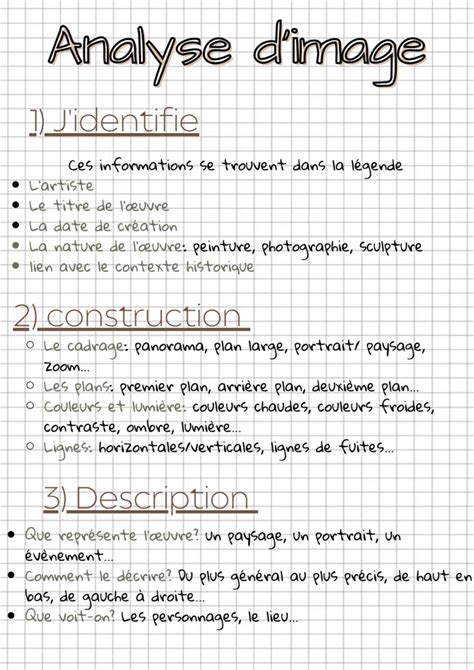 Analyse d'image
1) J'identifie
Ces informations se trouvent dans la légende
• L'artiste
• Le titre de l'œuvre
• La date de création
• La nature de l'œuvre: peinture, photographie, sculpture
• lien avec le contexte historique
2) construction
○ Le cadrage: panorama, plan large, portrait/ paysage,
zoom...
○ Les plans: premier plan, arrière plan, deuxième plan...
○ Couleurs et lumière: couleurs chaudes, couleurs froides,
contraste, ombre, lumière...
○ Lignes: horizontales/verticales, lignes de fuites...
3) Description
• Que représente l'œuvre? Un paysage, un portrait, un
évènement...
• Comment le décrire? Du plus général au plus précis, de haut en
bas, de gauche à droite...
• Que voit-on? Les personnages, le lieu...